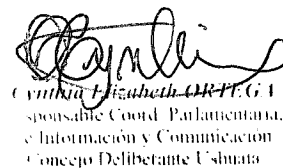 Cynthia Elizabeth ORTEGA
sponsable Coord. Parlamentaria,
e Información y Comunicación
Concejo Deliberante Ushuaia